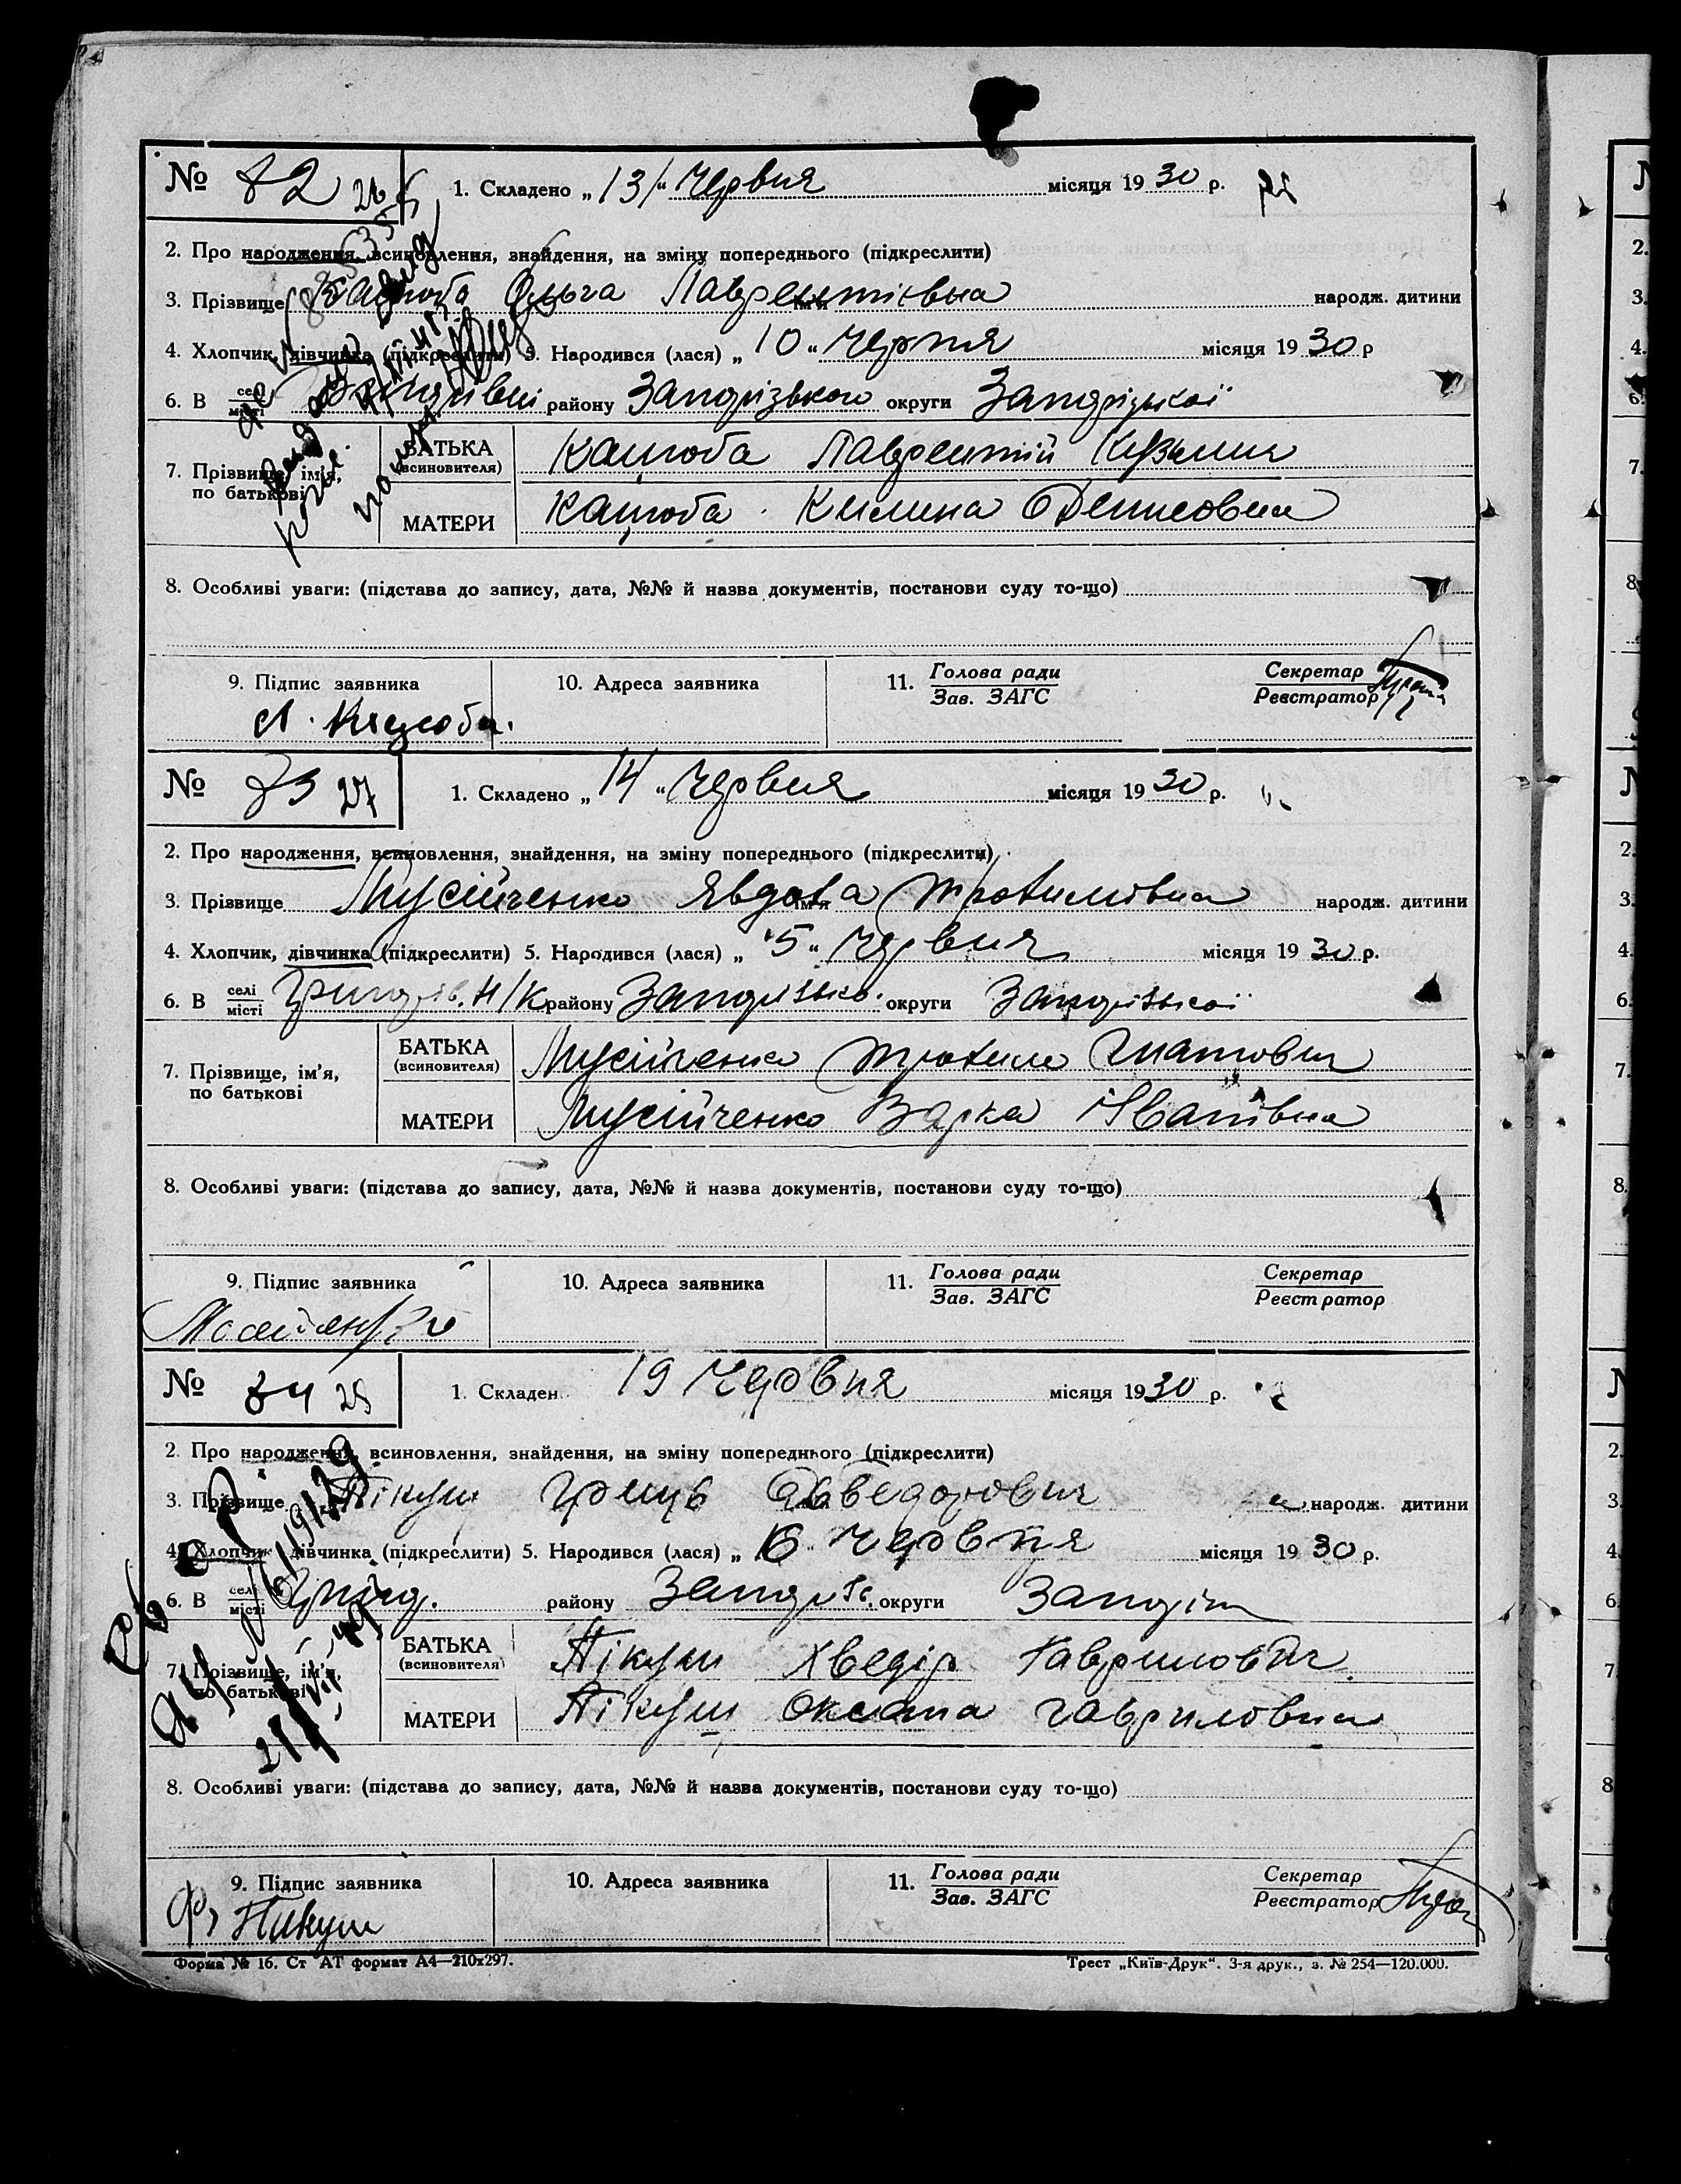 № 82 26 1. Складено „ 13 “ червня місяця 19 30 р.
2. Про народження, всиновлення, знайдення, на зміну попереднього (підкреслити)
3. Прізвище Кацюба Ольга ім'я Лаврентіівна народж. дитини
4. Хлопчик, дівчинка (підкреслити) 5. Народився (лася) „ 10 “ червня місяця 19 30 р
6. В селі місті району Запорізького округи Запорізької
7. Прізвище, ім'я, по батькові БАТЬКА (всиновителя) Кацюба Лаврентій
МАТЕРИ Кацюба Килина Денисовна
8. Особливі уваги: (підстава до запису, дата, №№ й назва документів, постанови суду то-що)
9. Підпис заявника 10. Адреса заявника 11. Голова ради Зав. ЗАГС Секретар Реєстратор
Л. Кацюба.
№ 83 27 1. Складено „ 14 “ червня місяця 19 30 р.
2. Про народження, всиновлення, знайдення, на зміну попереднього (підкреслити)
3. Прізвище Мусійченко Явдоха ім'я Трохимівна народж. дитини
4. Хлопчик, дівчинка (підкреслити) 5. Народився (лася) „ 5 “ червня місяця 19 30 р.
6. В селі місті району округи Запорізької
7. Прізвище, ім'я, по батькові БАТЬКА (всиновителя) Мусійченко Трохим Гнатович
МАТЕРИ Мусійченко Варка Іванівна
8. Особливі уваги: (підстава до запису, дата, №№ й назва документів, постанови суду то-що)
9. Підпис заявника 10. Адреса заявника 11. Голова ради Зав. ЗАГС Секретар Реєстратор
№ 84 28 1. Складен 19 червня місяця 19 30 р.
2. Про народження, всиновлення, знайдення, на зміну попереднього (підкреслити)
3. Прізвище Пікуш Гриць народж. дитини
4. Хлопчик, дівчинка (підкреслити) 5. Народився (лася) „ 16 “ червня місяця 19 30 р.
6. В селі місті району округи
7. Прізвище, ім'я, по батькові БАТЬКА (всиновителя) Пікуш Хведір Гаврилович
МАТЕРИ Пікуш Оксана Гавриловна
8. Особливі уваги: (підстава до запису, дата, №№ й назва документів, постанови суду то-що)
9. Підпис заявника 10. Адреса заявника 11. Голова ради Зав. ЗАГС Секретар Реєстратор
Ф, Пикуш
Форма № 16. Ст АТ формат А4—210x297. Трест „Київ-Друк“. 3-я друк., з. № 254—120.000.